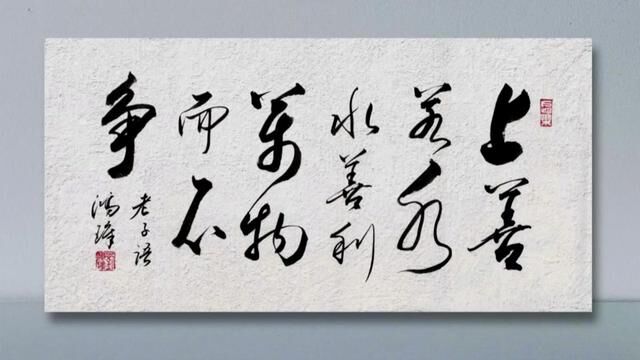 上善
若水
水善利
萬物
而不
争
老子語
鴻瑋